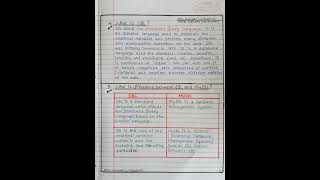 What is SQL?
SQL stands for Structured Query Language. It is
the standard language used to
relational database and perform many different
data manipulation operations on the data. SQL
was initially invented in 1970. It is a
language used for database creation, deletion,
fetching and modifying rows, etc. Sometimes, it
is pronounced as 'sequel'. We can also use it
to handle organized data comprised of entities
(variables) and relation between different entities
of the data.
What is difference between SQL and MySQL?
SQL
MySQL
SQL is a standard
language which stands
for Structured Query
Language based on the
English Language.
MySQL is a database
Management System
SQL is the core of the
relational database
which is used for
accessing and managing
database.
MySQL is a RDBMS
(Relational Database
Management System)
such as SQL